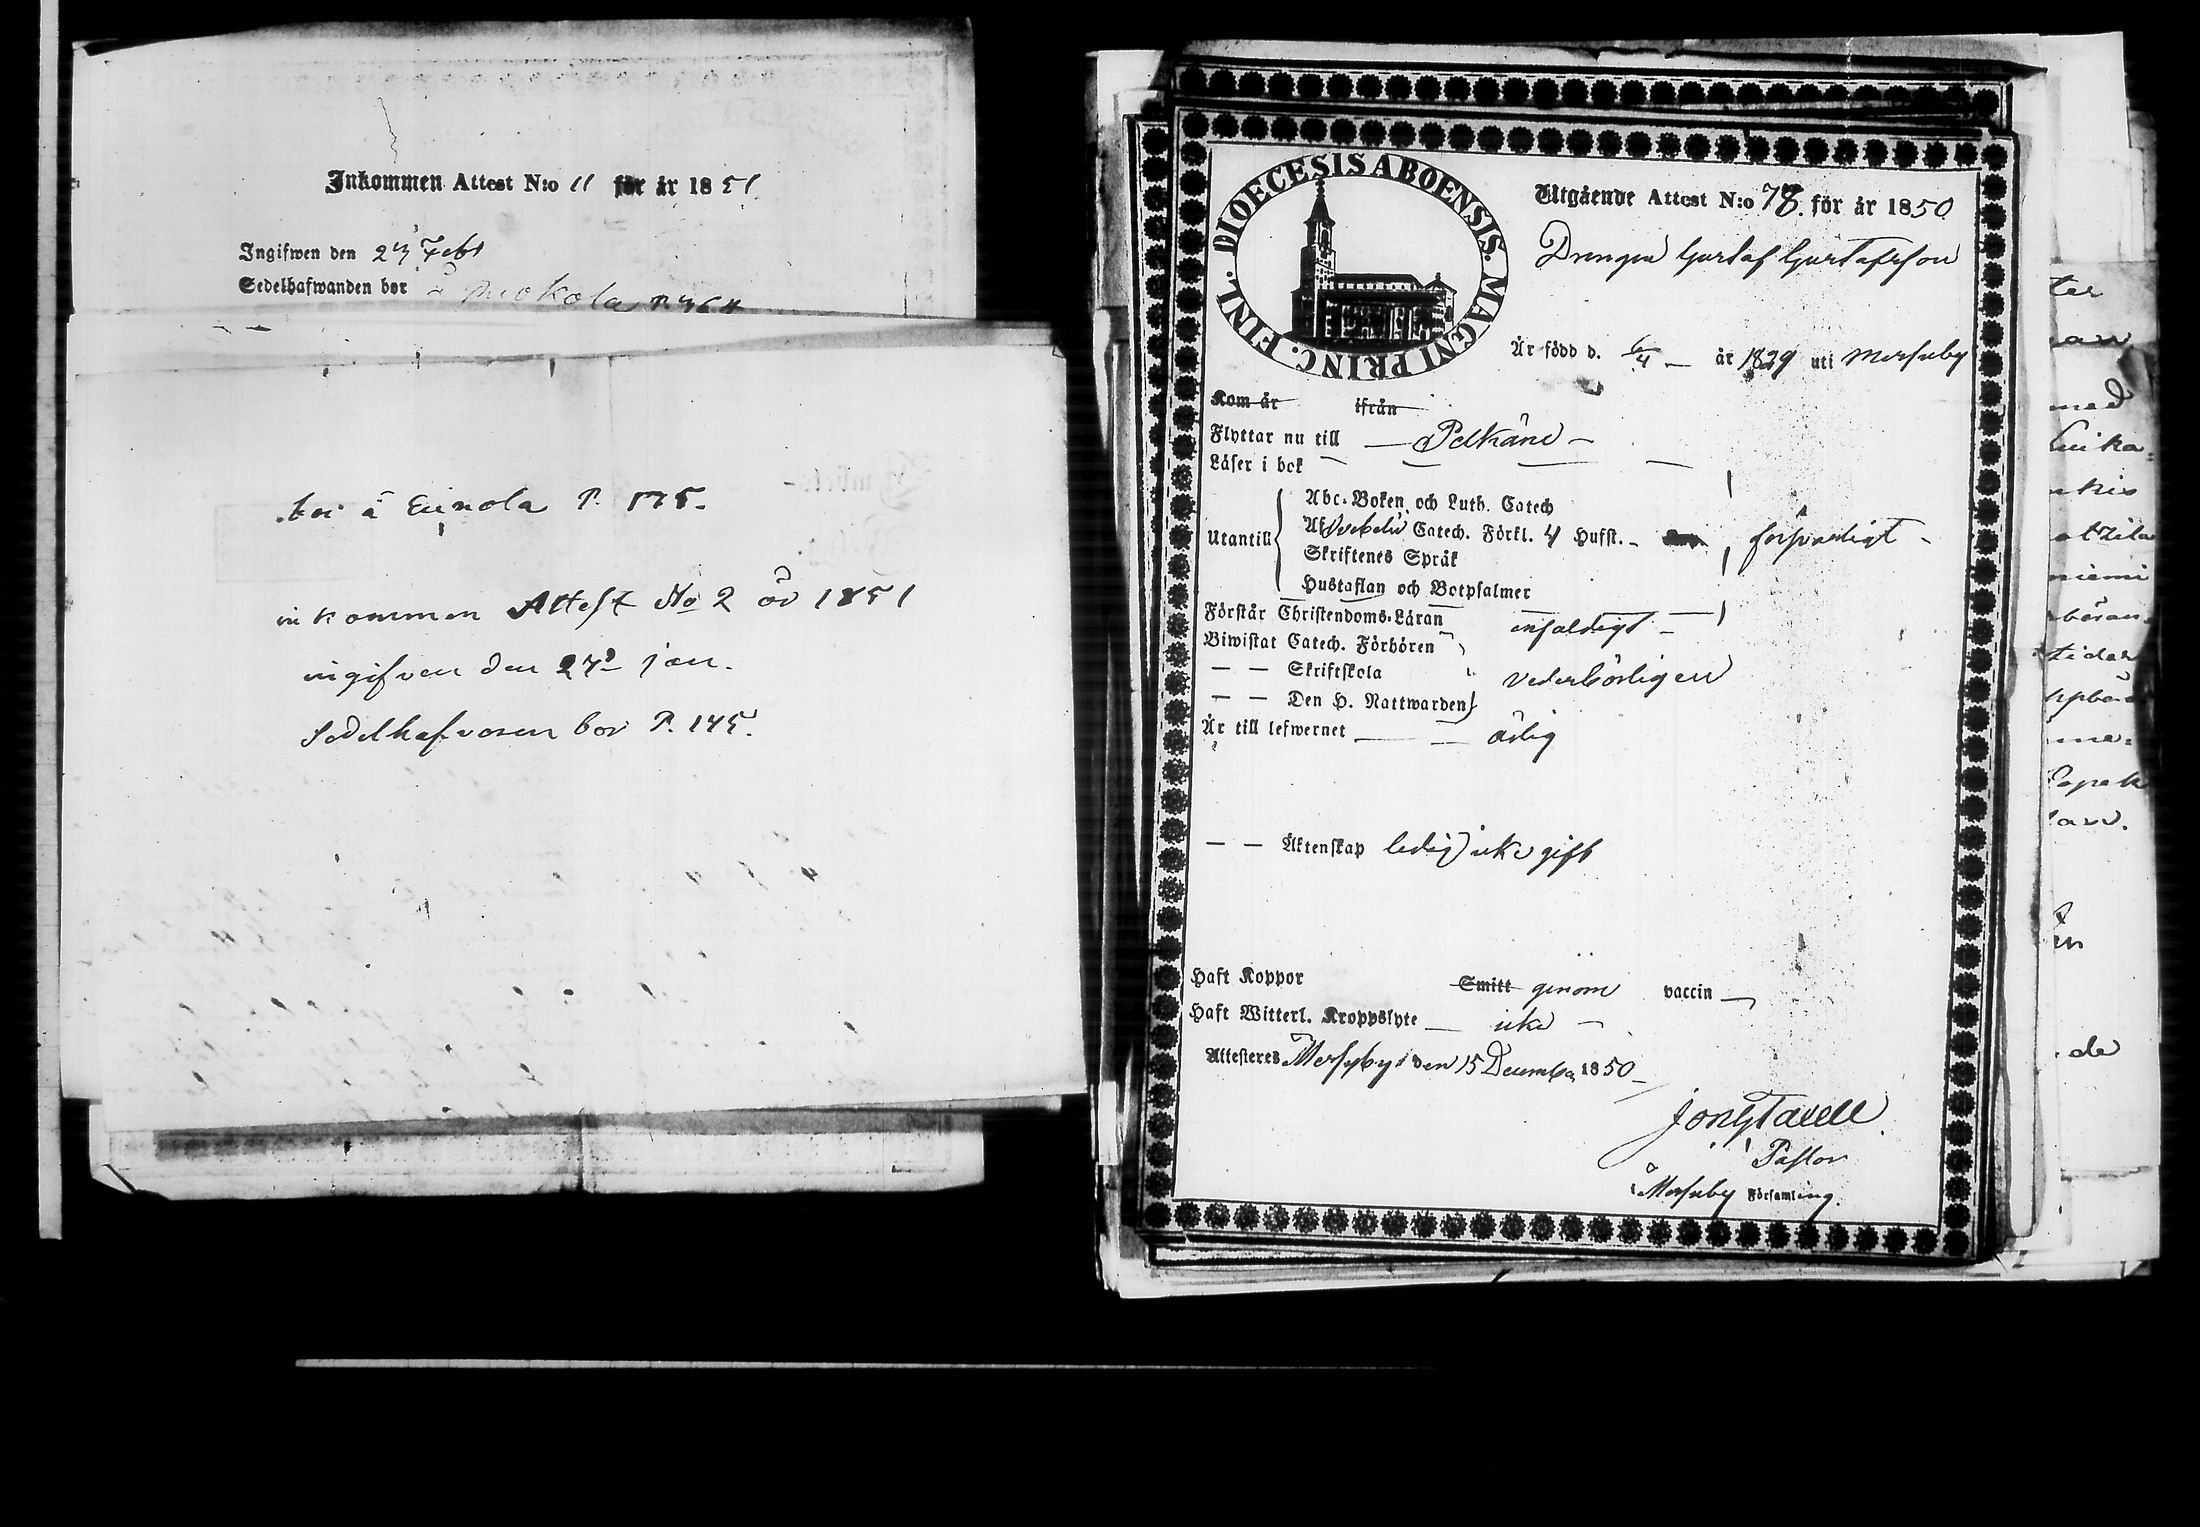 Inkommen Attest N:o 11 för år 1851
Ingifwen den 23 Febr
Sedelhafwanden bor å
bor å Einola P. 175.
inkommen Attest No 2 år 1851
ingifven den 27de jan.
Sedelhafvaren bor P. 145.
DIOECESIS ABOENSIS. MAGNI PRINC. FINL.
Utgående Attest N:o 78. för år 1850
Drengen Gustaf Gustafsson
Är född d. 6/4 – år 1829 uti Merfuby
Kom år ifrån
Flyttar nu till — Pelkäne –
Läser i bok
Utantill
Abc-Boken och Luth. Catech
Af Svebelii Catech. Förkl. 4 Hufst. –
försvarligt –
Skriftenes Språk
Hustaflan och Botpsalmer
Förstår Christendoms-Läran enfaldigt –
Biwistat Catech. Förhören
— — Skriftskola vederbörligen
— — Den H. Nattwarden
Är till lefwernet — — ärlig
— — Äktenskap ledig icke gift
Haft Koppor Smitt genom vaccin —
Haft Witterl. Kroppslyte — icke –
Attesteres Merfuby den 15 December 1850 –
Pastor
i Merfuby Församling.
ter
med
de